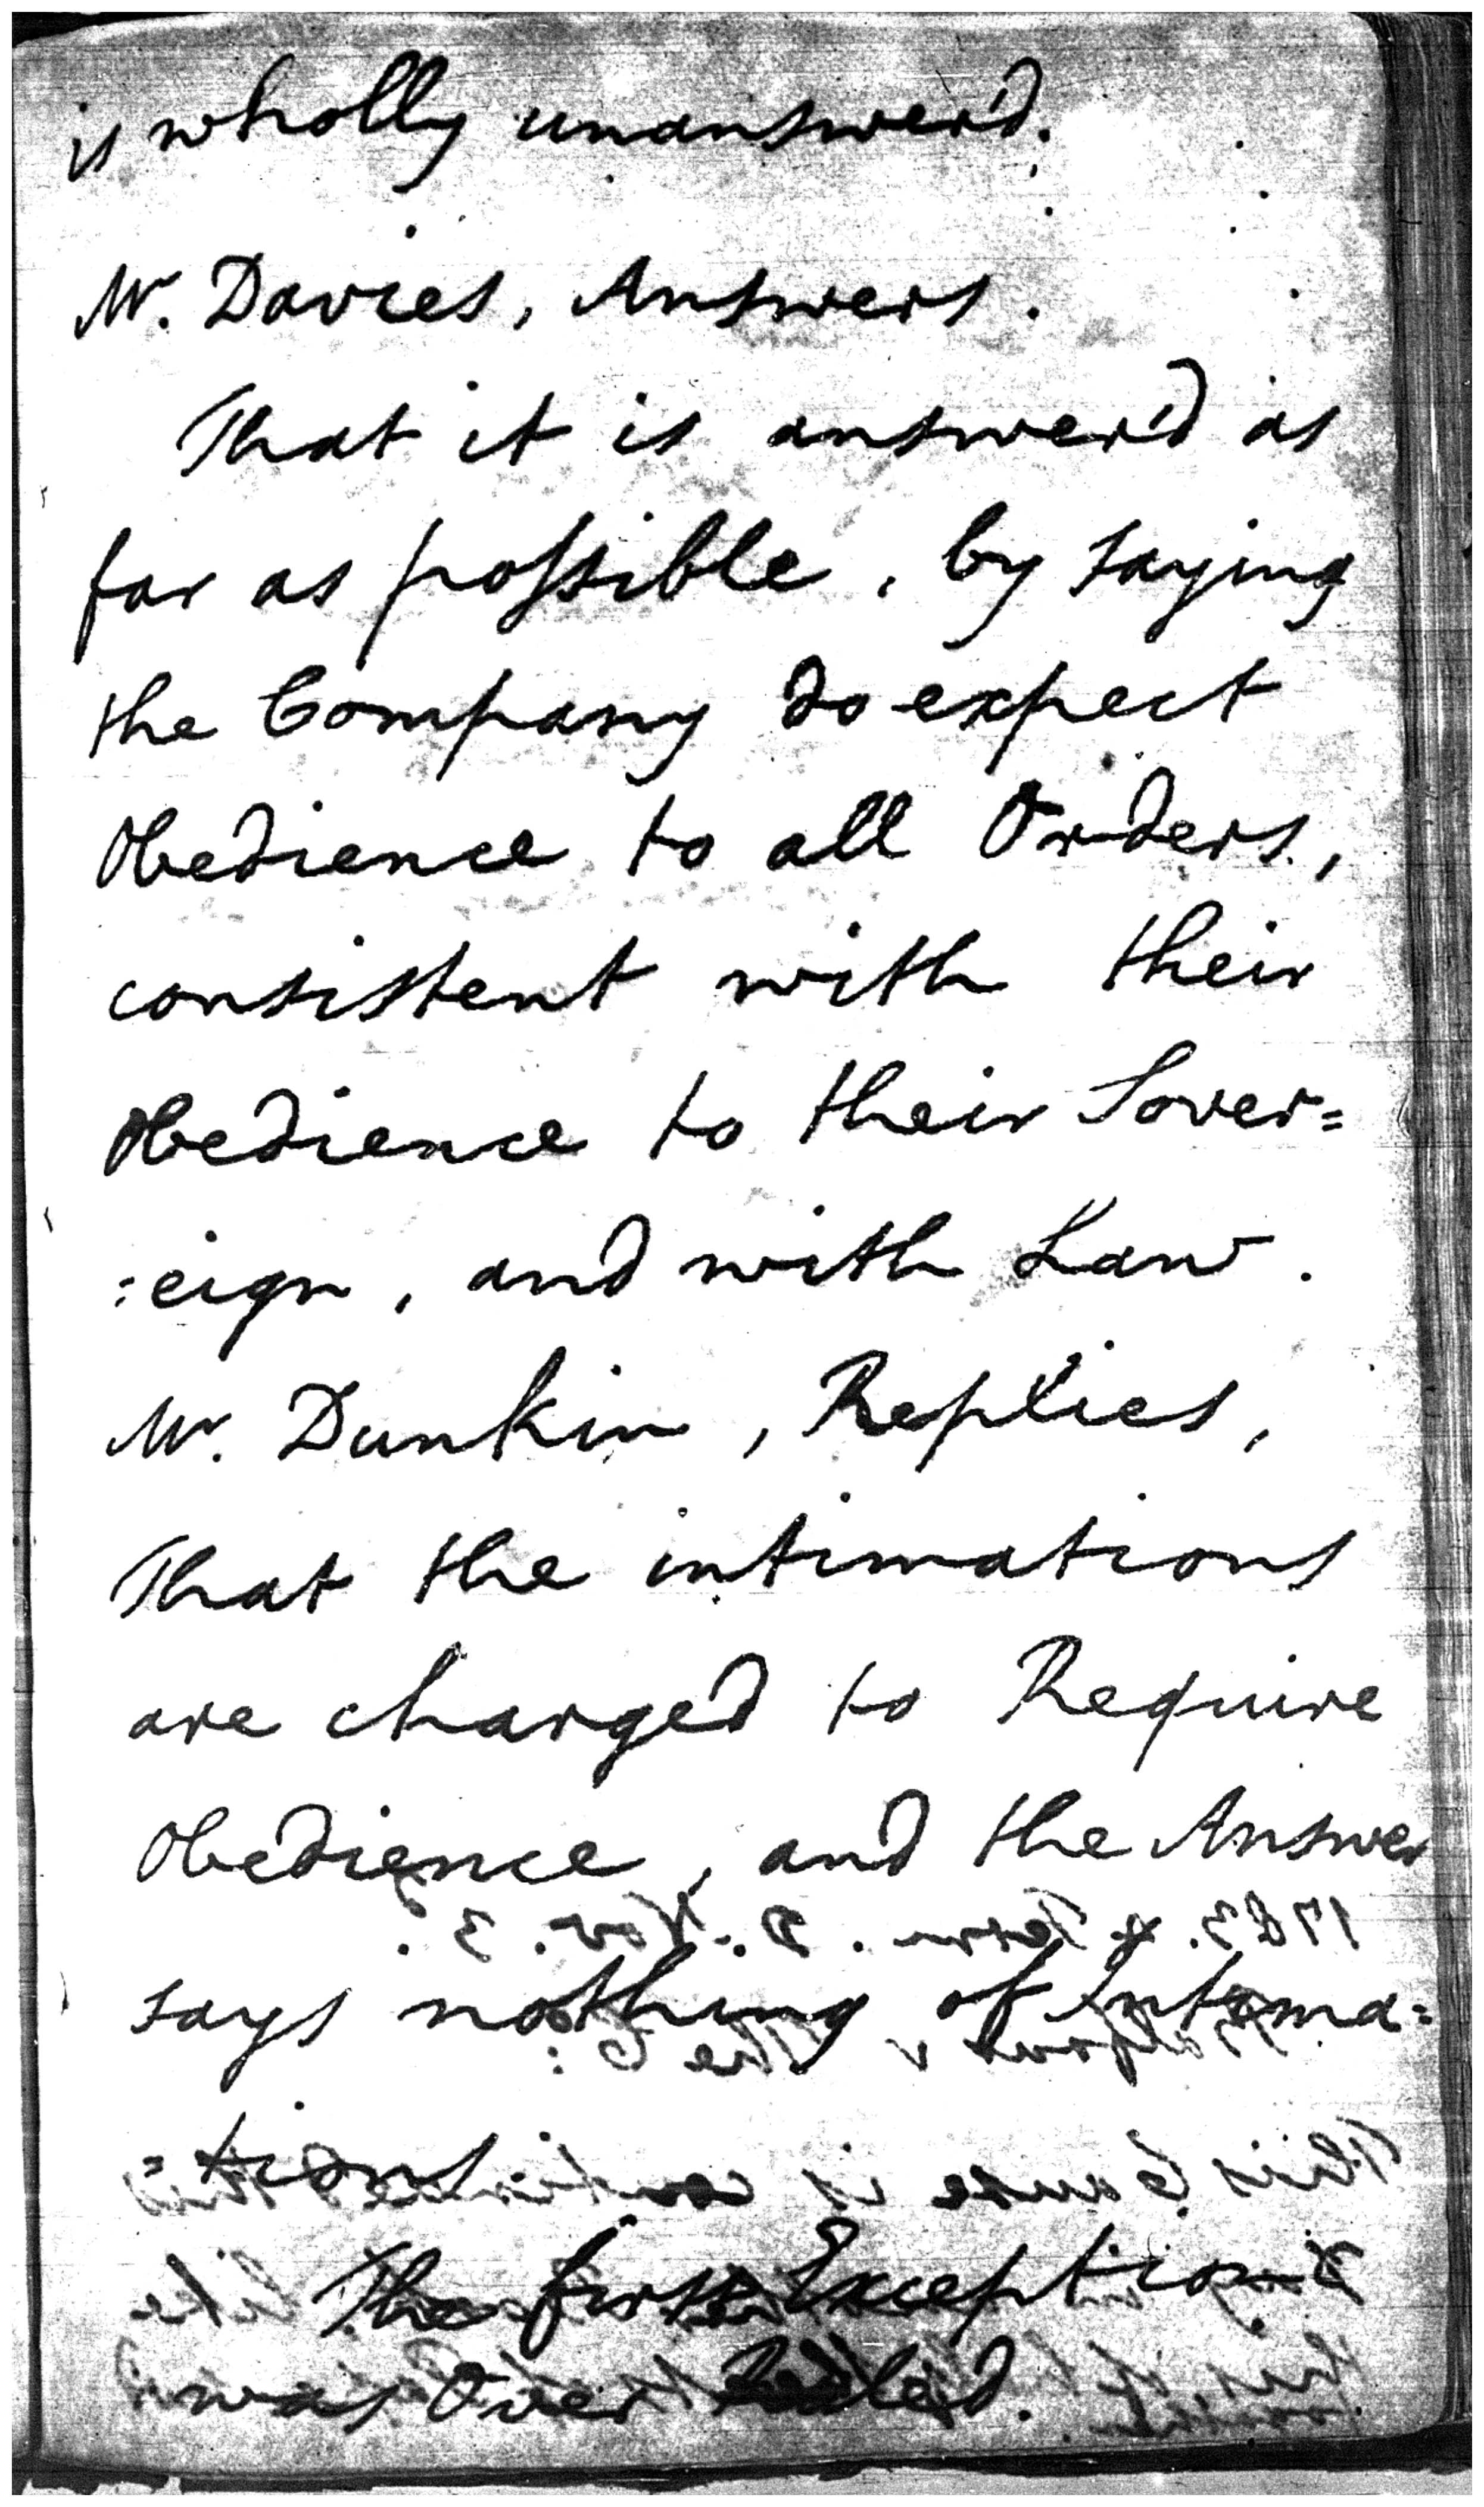 is wholly unanswer'd.
Mr. Davies, Answers.
That it is answer'd as
far as possible, by saying
the Company do expect
Obedience to all Orders,
consistent with their
Obedience to their Sover=
:eign, and with Law.
Mr. Dunkin, Replies,
That the intimations
are charged to Require
Obedience, and the Answer
says nothing of Intima=
=tions.
The first Exception
was Over Ruled.